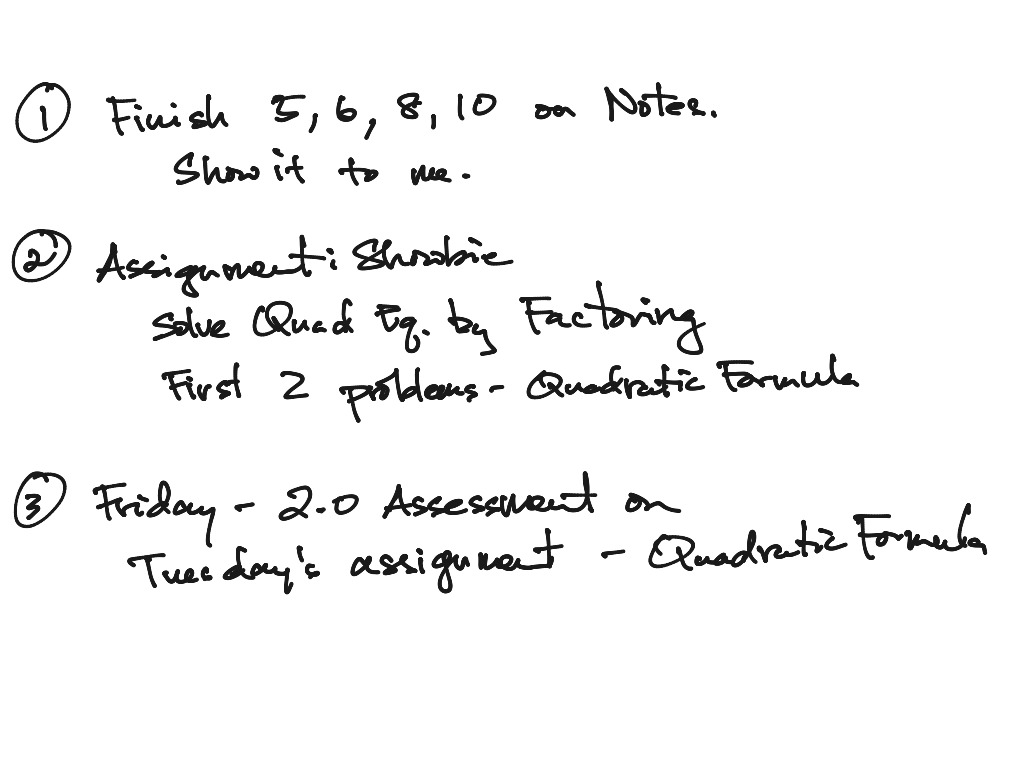 ① Finish 5, 6, 8, 10 on Notes.
Show it to me.
② Assignment: Showbie
Solve Quad Eq. by Factoring
First 2 problems - Quadratic Formula
③ Friday - 2.0 Assessment on
Tuesday's assignment - Quadratic Formula